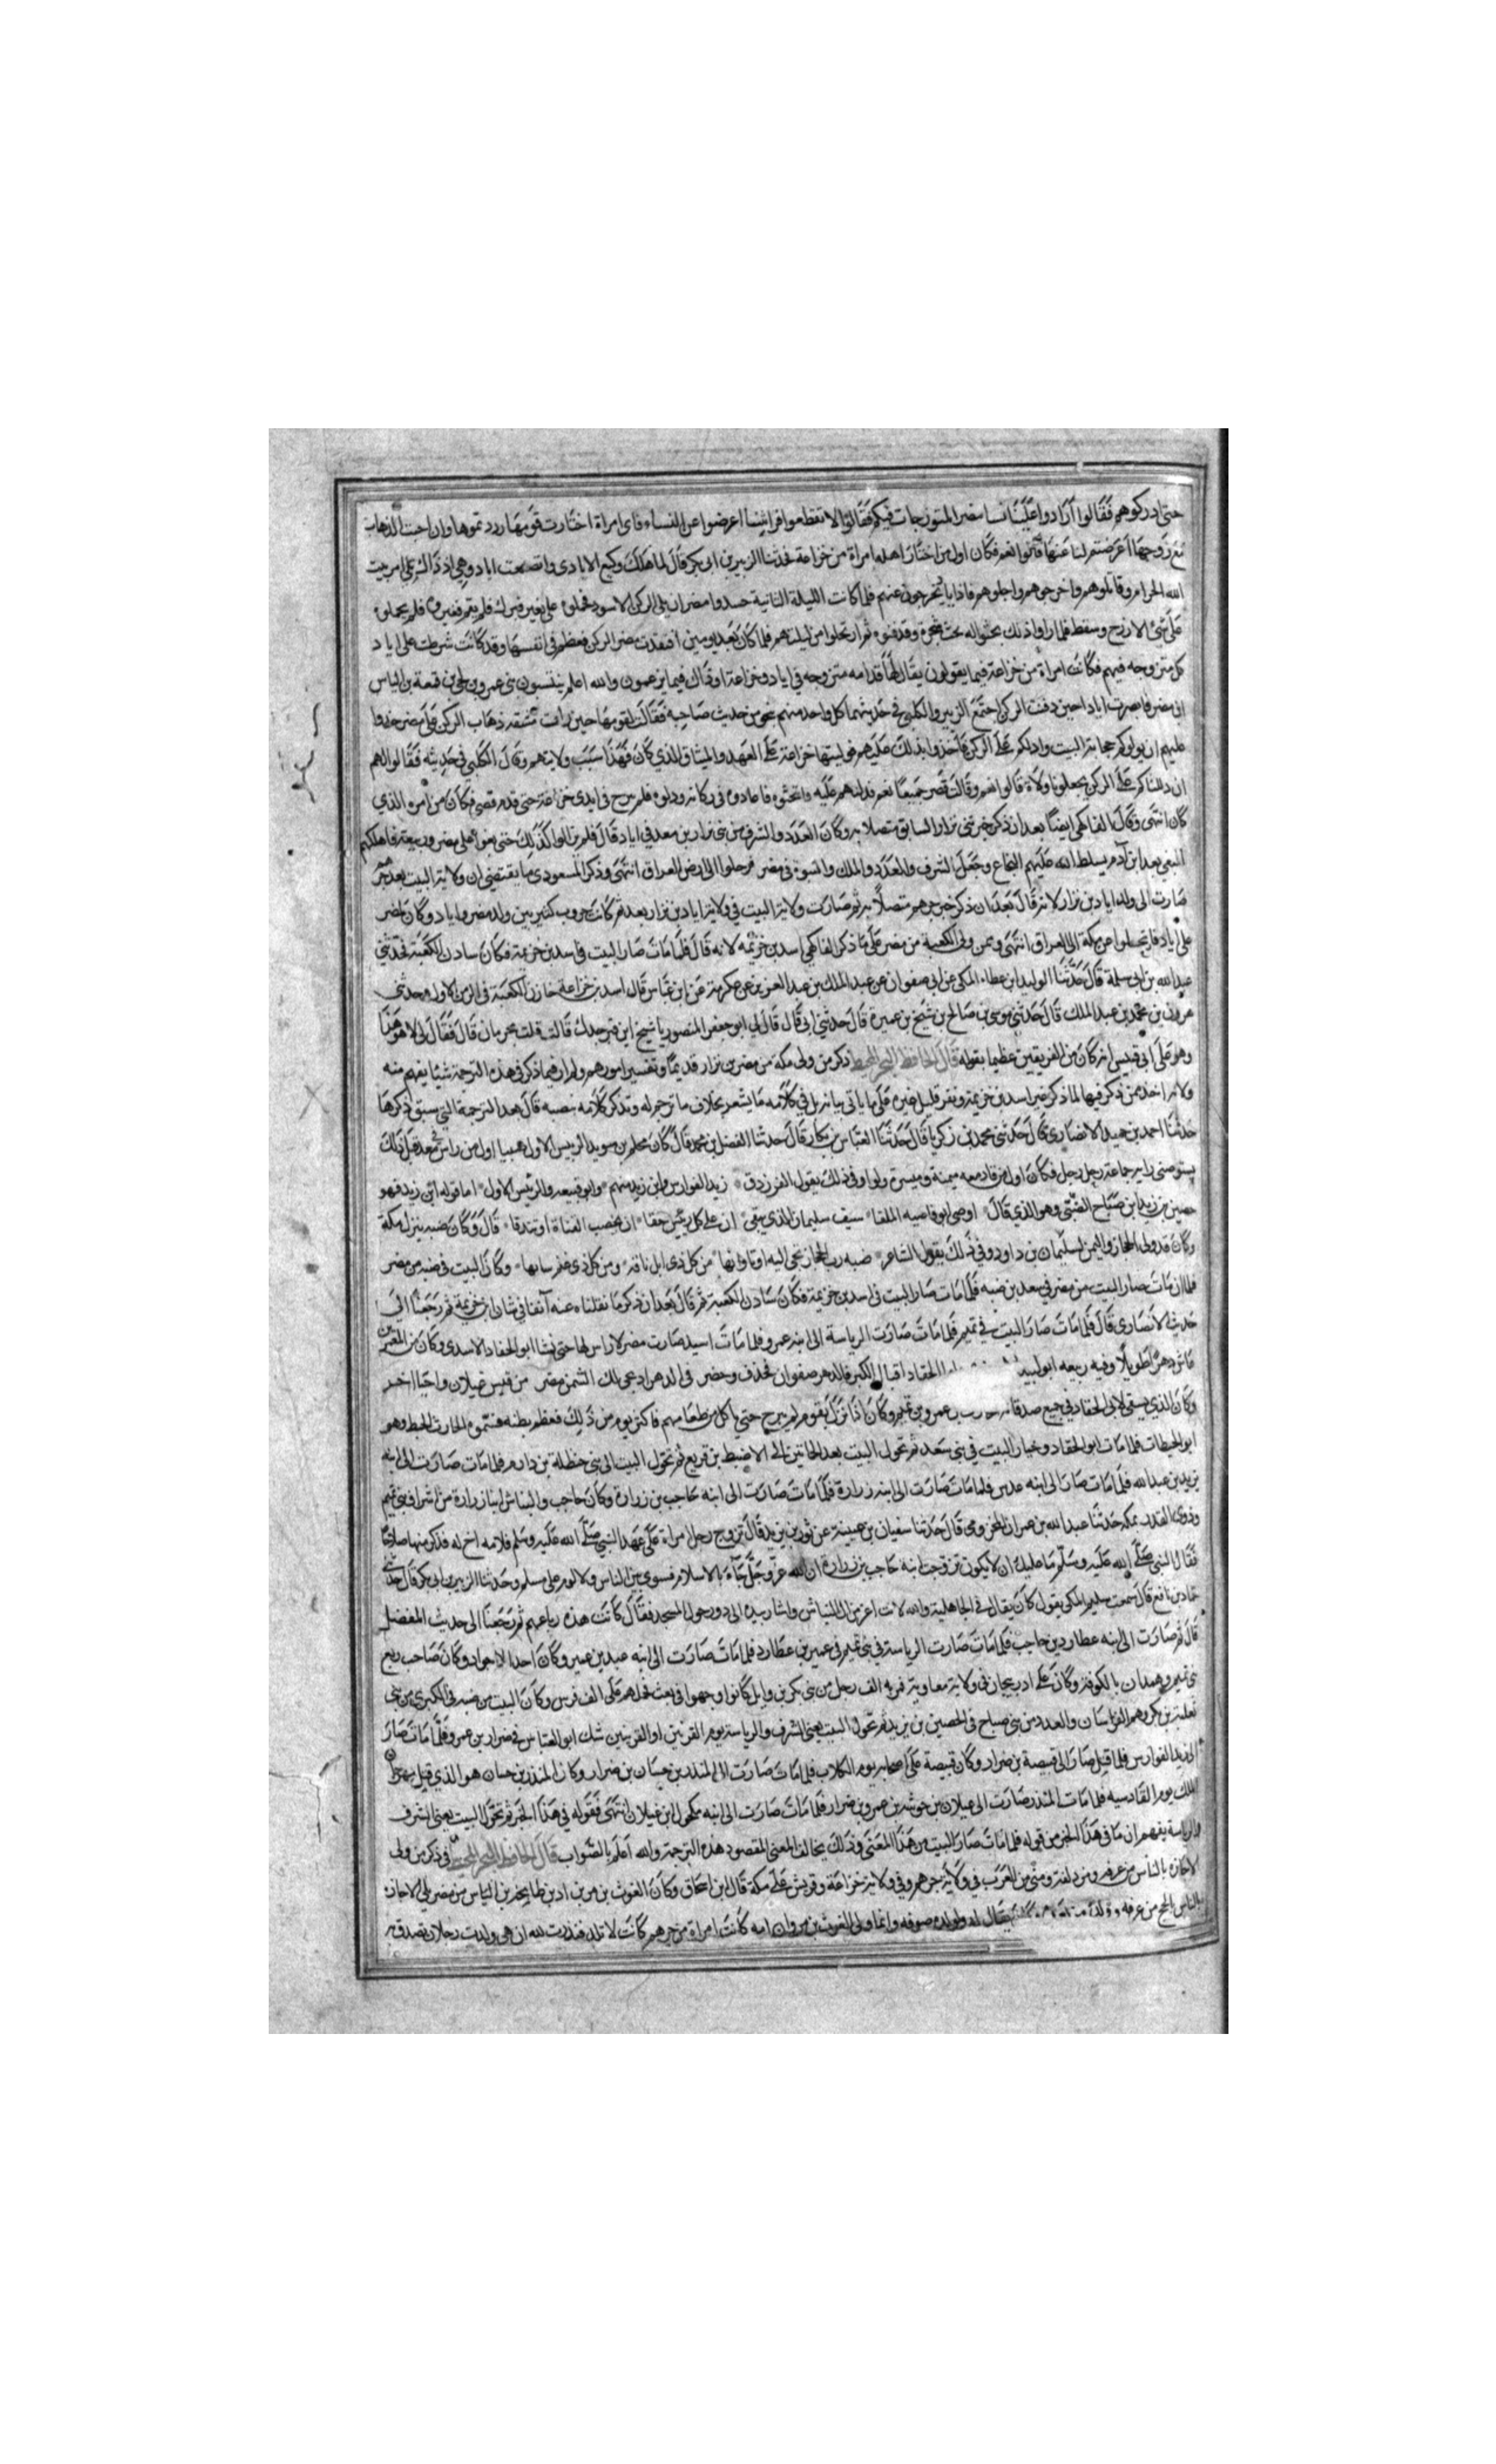 حتى ادركوهم فقالوا أرادوا علينا نسا مضر المتزوجات فيكم فقالوا لا تقطعوا قرابتنا اعرضوا عن النساء فاى امراة اختارت قومها رددتموها وان احبت الذهاب
مع زوجها اعرضتم لنا عنها قالوا نعم فكان اول من اختار اهله امراة من خزاعة فحدثنا الزبير بن ابى بكر قال لما هلك وكيع الايادى واتضعت اياد وهي اذ ذاك تلى امر بيت
الله الحرام وقاتلوهم واخرجوهم واجلوهم فلما كانت الليلة الثانية حسدوا مضر ان يلى الركن الاسود فحملوه على بعير فبرك فلم يقم فغيروه فلم يحملوه
على شئ الا رزح وسقط فلما راوا ذلك بحثوا له تحت شجرة ودفنوه ثم ارتحلوا من ليلتهم فلما كان بعد يومين افتقدت مضر الركن فعظم فى انفسها وقد كانت شرطت على اياد
كل متزوجه فيهم فكانت امراة من خزاعة فيما يقولون يقال لها قدامه متزوجه في اياد وخزاعة اذ ذاك فيما يزعمون والله اعلم ينتسبون بنى عمرو بن لحى بن قمعة بن الياس
ابن مضر فابصرت اياد احين دفنت الركن اجتمع الزبير والكلبى في حديثهما كل واحد منهم نحو من حديث صاحبه فقالت لقومها حين رات مشقة ذهاب الركن على مضر خذوا
عليهم ان يولوكم حجابة البيت وادلكم على الركن فأخذوا بذلك عليهم فوليتها خزاعة على العهد والميثاق الذي كان فهذا سبب ولايتهم وقال الكلبي في حديثه فقالوا لهم
ان دللناكم على الركن تجعلونا ولاة قالوا نعم وقالت مضر جميعا نعم فدلتهم عليه فابتحثوه فاعادوه فى مكانه وولوه فلم يبرح في ايدى خزاعة حتى قدم قصي فكان من امره الذي
كان انتهى وقال الفاكهى ايضا بعد ان ذكر خبر بنى نزار السابق متصلا به وكان العدد والشرف من بنى نزار بن معد في اياد قال فلم يزالوا كذلك حتى بغوا على مضر وربيعة فاهلكهم
البغي بعد ابن آدم يسلط الله عليهم النخاع وجعل الشرف والعدد والملك والنبوة فى مضر فرحلوا الى ارض العراق انتهى وذكر المسعودى ما يقتضي ان ولاية البيت بعد جرهم
صارت الى ولد اياد بن نزار لانه قال بعد ان ذكر خبر جرهم متصلا به ثم صارت ولاية البيت في ولاية اياد بن نزار بعد ثم كانت حروب كثيرة بين ولد مضر واياد وكان لمضر
على اياد فارتحلوا عن مكة الى العراق انتهى وممن ولى الكعبة من مضر على ما ذكر الفاكهي اسد بن خزيمه لانه قال فلما مات صار البيت فى اسد بن خزيمة فكان سادن الكعبة فحدثني
عبد الله بن ابى سلمة قال حدثنا الوليد بن عطاء المكى عن ابى صفوان عن عبد الملك بن عبد العزيز عن عكرمة عن ابن عباس قال اسد بن خزاعة خازن الكعبة فى الزمن الاول وحدثنى
هرون بن محمد بن عبد الملك قال حدثني موسى بن صالح بن شيخ بن عميرة قال حدثني ابى قال قال لي ابو جعفر المنصور يا شيخ اين قبر جدك قالت قلت بحرمان قال فقال لى لا هو هذا
وهو على ابى قبيس انه كان من الفريقين عظيما بقوله قال الحافظ ذكر من ولى مكة من مضر بن نزار قديما وتفسير امورهم ولم ار فيما ذكر في هذه الترجمة شيئا يفهم منه
ولاية احد ممن ذكر فيها لما ذكر غير اسد بن خزيمة ونفر قليل غيره على ما ياتى بيانه بل في كلامه ما يشعر بخلاف ما ترجم له ونذكر كلامه بنصه قال بعد الترجمة التي سبق ذكرها
حدثنا احمد بن حميد الانصارى قال حدثني محمد بن زكريا قال حدثنا العباس بن بكار قال حدثنا الفضل بن محمد قال كان محلم بن سويد الرييس الاول ضبيا اول من راس معد قبل ذلك
يستوصى برايه جماعة رجل رجل وكان اول من قاد معه ميمنة وميسرة ولواء وفي ذلك يقول الفرزدق زيد الفوارس وابن زيد منهم وابو قبيصه والرئيس الاول اما قوله ابن زيد فهو
حصين بن زيد بن صباح الضبى وهو الذي قال اوصى ابو قاصيه الملقا سيف سليمان الذي يبقى ان على كل رئيس حقا ان يخضب القناة او تندقا قال وكان ضبه ينزل مكة
وكان قد ولى الحجاز واليمن لسليمان بن داود وفي ذلك يقول الشاعر ضبه رب الحجاز تجبى اليه اتاواتها من كل ذى ابل ناقة ومن كل ذى غنم سايها وكان البيت فى ضبه من مضر
فلما ان مات صار البيت من مضر في سعد بن ضبه فلما مات صار البيت فى اسد بن خزيمة فكان سادن الكعبة ثم قال بعد ان ذكر ما نقلناه عنه آنفا في شان ابن خزيمة ثم رجعنا الى
حديث الانصارى قال فلما مات صار البيت في تميم فلما مات صارت الرياسة الى ابنه عمرو فلما مات اسيد صارت مضر لا راس لها حتى نشا ابو الخفاد الاسدى وكان من المعمرين
عاش دهرا طويلا وفيه ربيعه ابو لبيد الحفاد اقبال الكبر فالدهر صفوان فحذف وحضر
وكان الذي يسقى لابى الحفاد في جميع صدقاته عمرو بن تميم وكان اذا نزل بقوم لم يبرح حتى ياكل من طعامهم فاكثر يوم من ذلك فعظم بطنه فسموه الحارث الحبط وهو
ابو الحبطات فلما مات ابو الحفاد وخيار البيت في بنى سعد ثم تحول البيت بعد الى الاضبط بن قريع ثم تحول البيت الى بنى حنظلة بن دارم فلما مات صارت الى ابنه
يزيد بن عبد الله فلما مات صار الى ابنه عدس فلما مات صارت الى ابنه زرارة فلما مات صارت الى ابنه حاجب بن زرارة وكان حاجب والنباش ابنا زرارة من اشراف بنى تميم
وذوى القدر بمكة حدثنا عبد الله بن عمران المخزومى قال حدثنا سفيان بن عيينة عن ثور بن يزيد قال تزوج رجل امراة على عهد النبي صلى الله عليه وسلم فلامه اخ له فذكر منها صلاحا
فقال النبى صلى الله عليه وسلم ما عليك ان لا يكون تزوجت ابنة حاجب بن زرارة ان الله عز وجل جاء بالاسلام فسوى بين الناس ولا لوم على مسلم وحدثنا الزبير بن ابى بكر قال حدثني
حماد بن نافع قال سمعت سليم المكى يقول كان يقال في الجاهلية والله لانت اعز من ال النباش واشار بيده الى دور حول المسجد فقال كانت هذه رباعهم ثم رجعنا الى حديث المفضل
قال ثم صارت الى ابنه عطارد بن حاجب فلما مات صارت الرياسة في بنى تميم فى عمير بن عطارد فلما مات صارت الى ابنه عبد بن عمير وكان احد الاجواد وكان صاحب ربع
بنى تميم وهمدان بالكوفة وكان على ادربيجان فى ولاية معاوية فر به الف رجل من بنى بكر بن وايل كانوا وجهوا فى بعث فحملهم على الف فرس وكان البيت من ضبه فى الكبرى من بنى
ثعلبة بن بكر وهم الفرسان والعدد من بنى صباح فى الحصين بن يزيد ثم تحول البيت يعنى الشرف والرياسة يوم القرنين او القريتين شك ابو العباس في ضرار بن عمرو فلما مات صار
الى زيد الفوارس فلما قتل صار الى قبيصة بن ضرار وكان قبيصة على اصحابه يوم الكلاب فلما مات صارت الى المنذر بن حسان بن ضرار وكان المنذر بن حسان هو الذي قتل مهران
الملك يوم القادسيه فلما مات المنذر صارت الى غيلان بن خرشه بن عمرو بن ضرار فلما مات صارت الى ابنه مكحول ابن غيلان انتهى فقوله في هذا الخبر ثم تحول البيت يعنى الشرف
والرياسة يفهم ان ما فى هذا الخبر من قوله فلما مات صار البيت من هذا المعنى وذلك يخالف المعنى المقصود هذه الترجمة والله اعلم بالصواب قال الحافظ فى ذكر من ولى
الاجازة بالناس من عرفه ومزدلفة ومنى من العرب في ولاية جرهم وفي ولاية خزاعة وقريش على مكة قال ابن اسحاق وكان الغوث بن مر بن اد بن طابخة بن الياس من مضر يلى الاجازة
بالناس الحج من عرفه وولده يقال له ولولده صوفه وانما ولى الغوث بن مر وان امه كانت امراة من جرهم كانت لا تلد فنذرت لله ان هى ولدت رجلا ان تصدق به